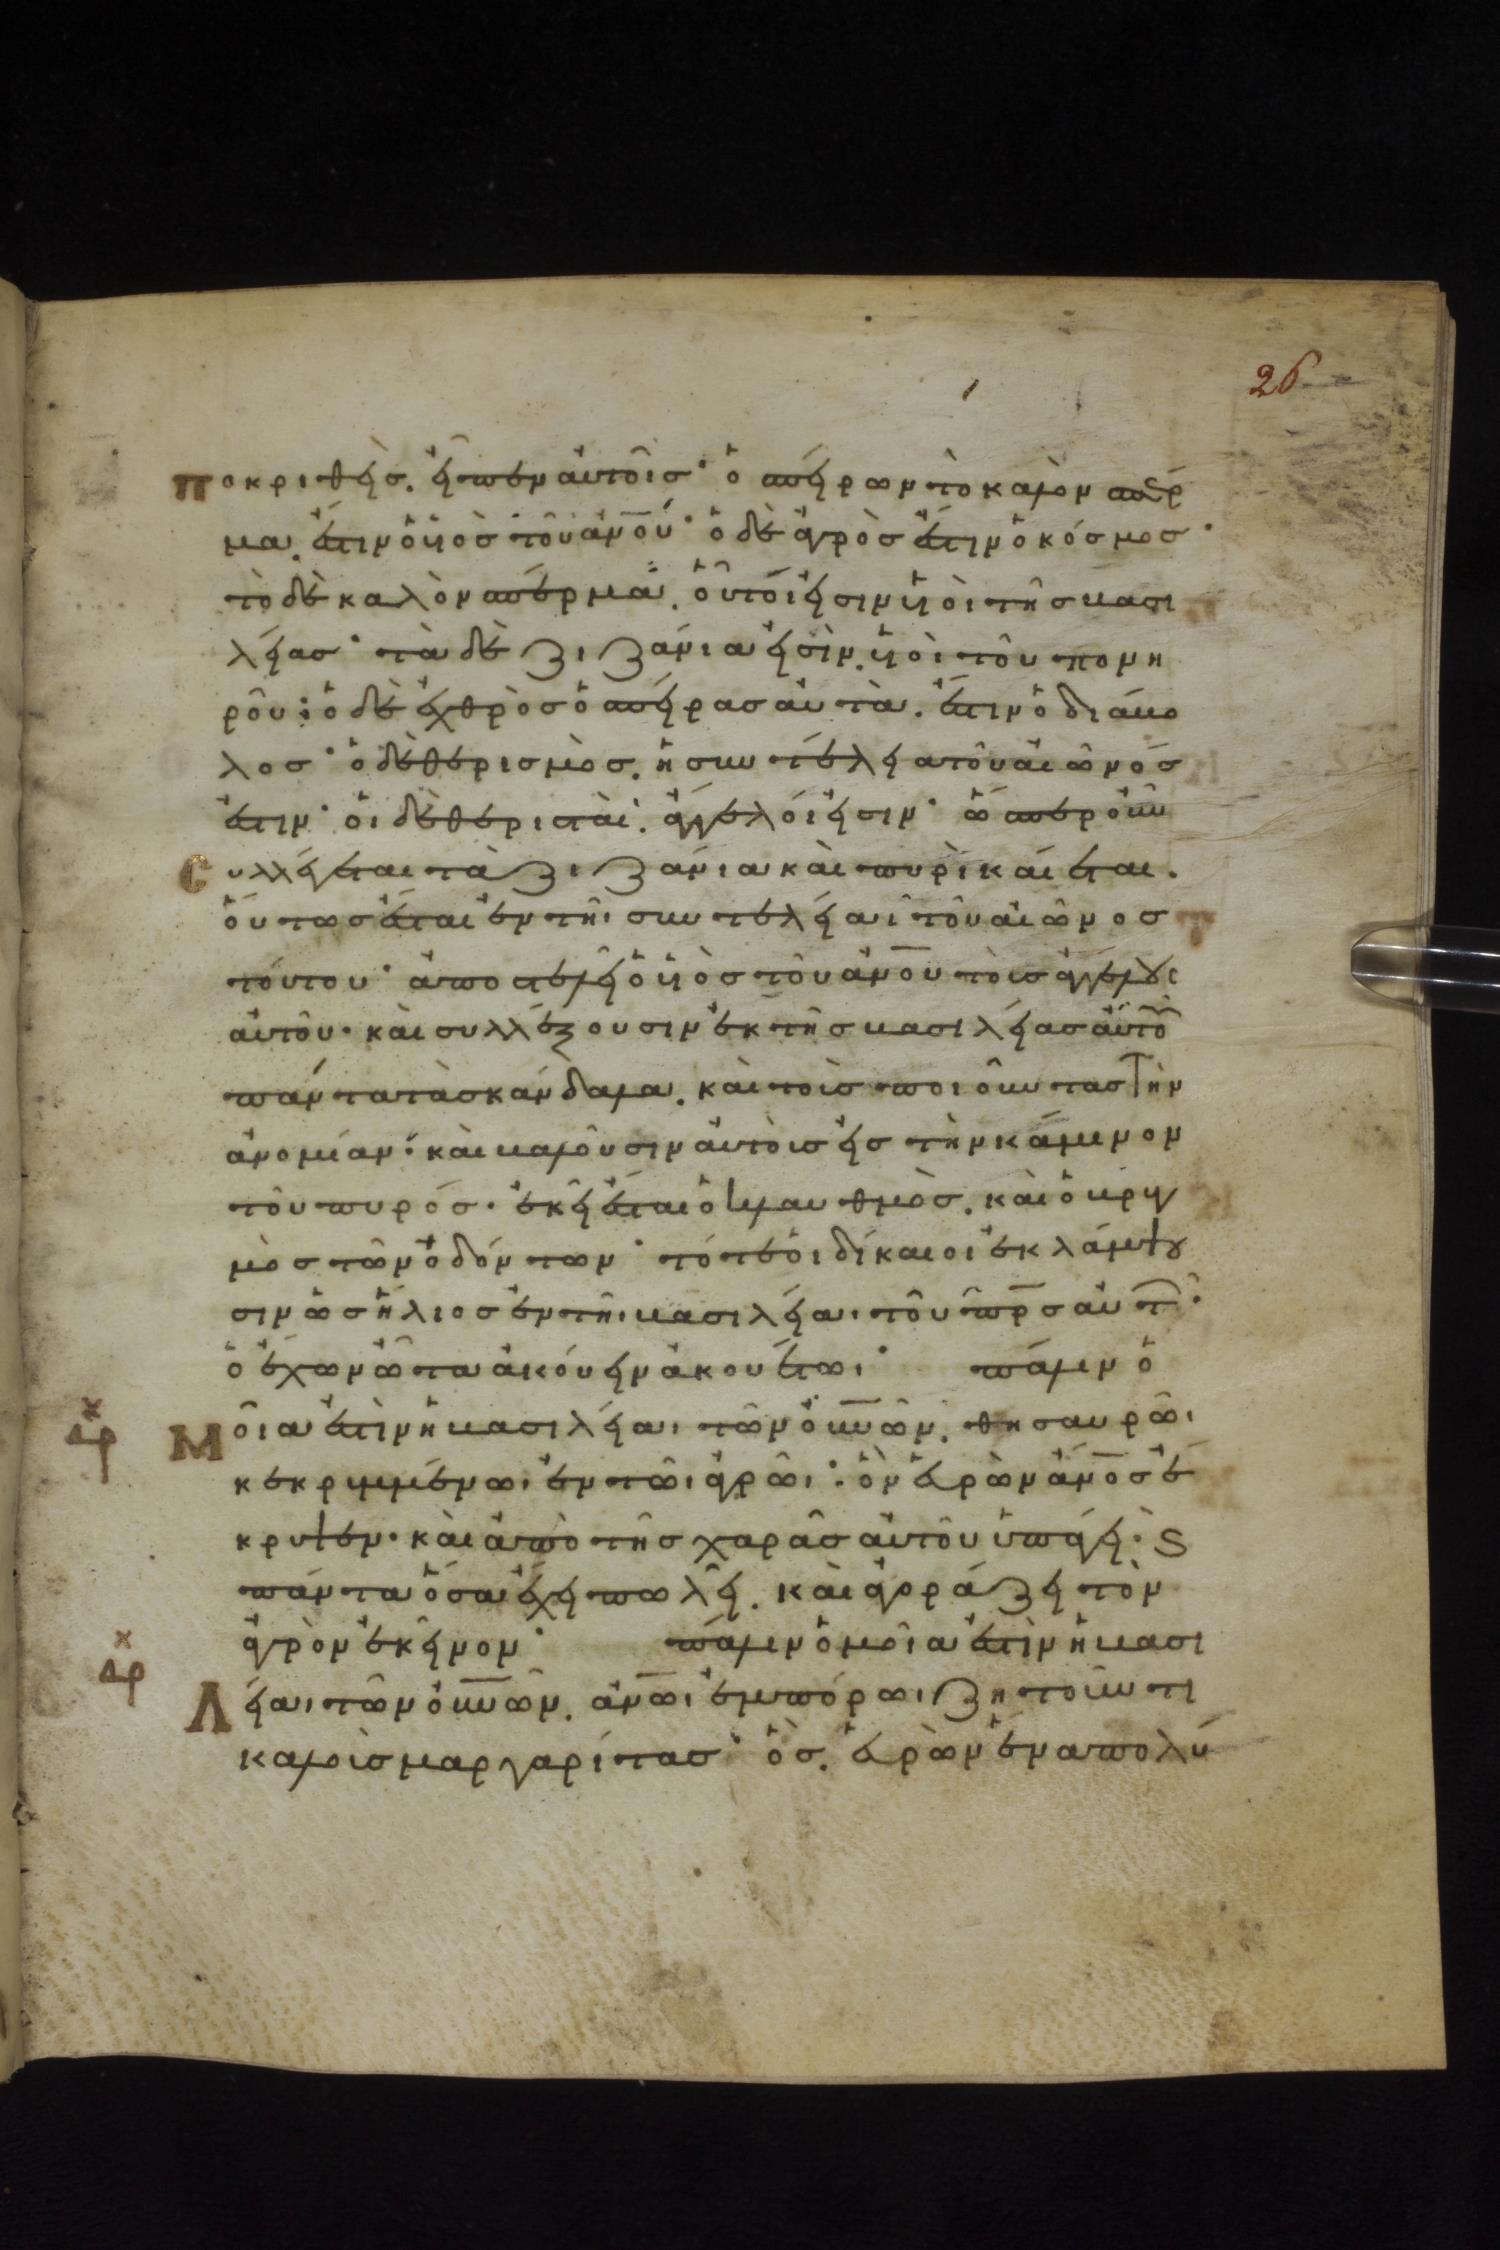 26
ποκριθεὶς. εἶπεν αὐτοῖς· ὁ σπείρων τὸ καλὸν σπέρ
μα. ἐστιν ὁ υἱὸς τοῦ ἀνου· ὁ δὲ ἀγρὸς ἐστιν ὁ κόσμος·
τὸ δὲ καλὸν σπέρμα. οὗτοί εἰσιν υἱοὶ τῆς βασι
λείας· τὰ δὲ ζιζάνια εἰσὶν. υἱοὶ τοῦ πονη
ροῦ· ὁ δὲ ἐχθρὸς ὁ σπείρας αὐτὰ. ἐστιν ὁ διάβο
λος· ὁ δὲ θερισμὸς. ἡ συντέλεια τοῦ αἰῶνός
ἐστιν· οἱ δὲ θερισταὶ. ἄγγελοί εἰσιν· ὥσπερ οὖν
συλλέγεται τὰ ζιζάνια καὶ πυρὶ καίεται.
οὕτως ἔσται ἐν τῆι συντελείαι τοῦ αἰῶνος
τούτου· ἀποστελεῖ ὁ υἱὸς τοῦ ἀνου τοὺς ἀγγέλους
αὐτοῦ· καὶ συλλέξουσιν ἐκ τῆς βασιλείας αὐτοῦ
πάντα τὰ σκάνδαλα. καὶ τοὺς ποιοῦντας τὴν
ἀνομίαν· καὶ βαλοῦσιν αὐτοὺς εἰς τὴν κάμινον
τοῦ πυρός· ἐκεῖ ἔσται ὁ κλαυθμὸς. καὶ ὁ βρυγ
μὸς τῶν ὀδόντων· τότε οἱ δίκαιοι ἐκλάμψου
σιν ὡς ἥλιος ἐν τῆι βασιλείαι τοῦ πρς αὐτῶν·
ὁ ἔχων ὦτα ἀκούειν ἀκουέτωι· πάλιν ὁ
Μοία ἐστὶν ἡ βασιλείαι τῶν οὐνῶν. θησαυρῶι
κεκρυμμένωι ἐν τῶι ἀγρῶι· ὃν εὑρὼν ἀνος ἔ
κρυψεν· καὶ ἀπὸ τῆς χαρᾶς αὐτοῦ ὑπάγει· ϛ
πάντα ὅσα ἔχει πωλεῖ. καὶ ἀγοράζει τὸν
ἀγρὸν ἐκεῖνον· πάλιν ὁμοία ἐστὶν ἡ βασι
Λείαι τῶν οὐνῶν. ἀνωι ἐμπόρωι ζητοῦντι
καλοὺς μαργαρίτας· ὃς. εὑρὼν ἕνα πολύ